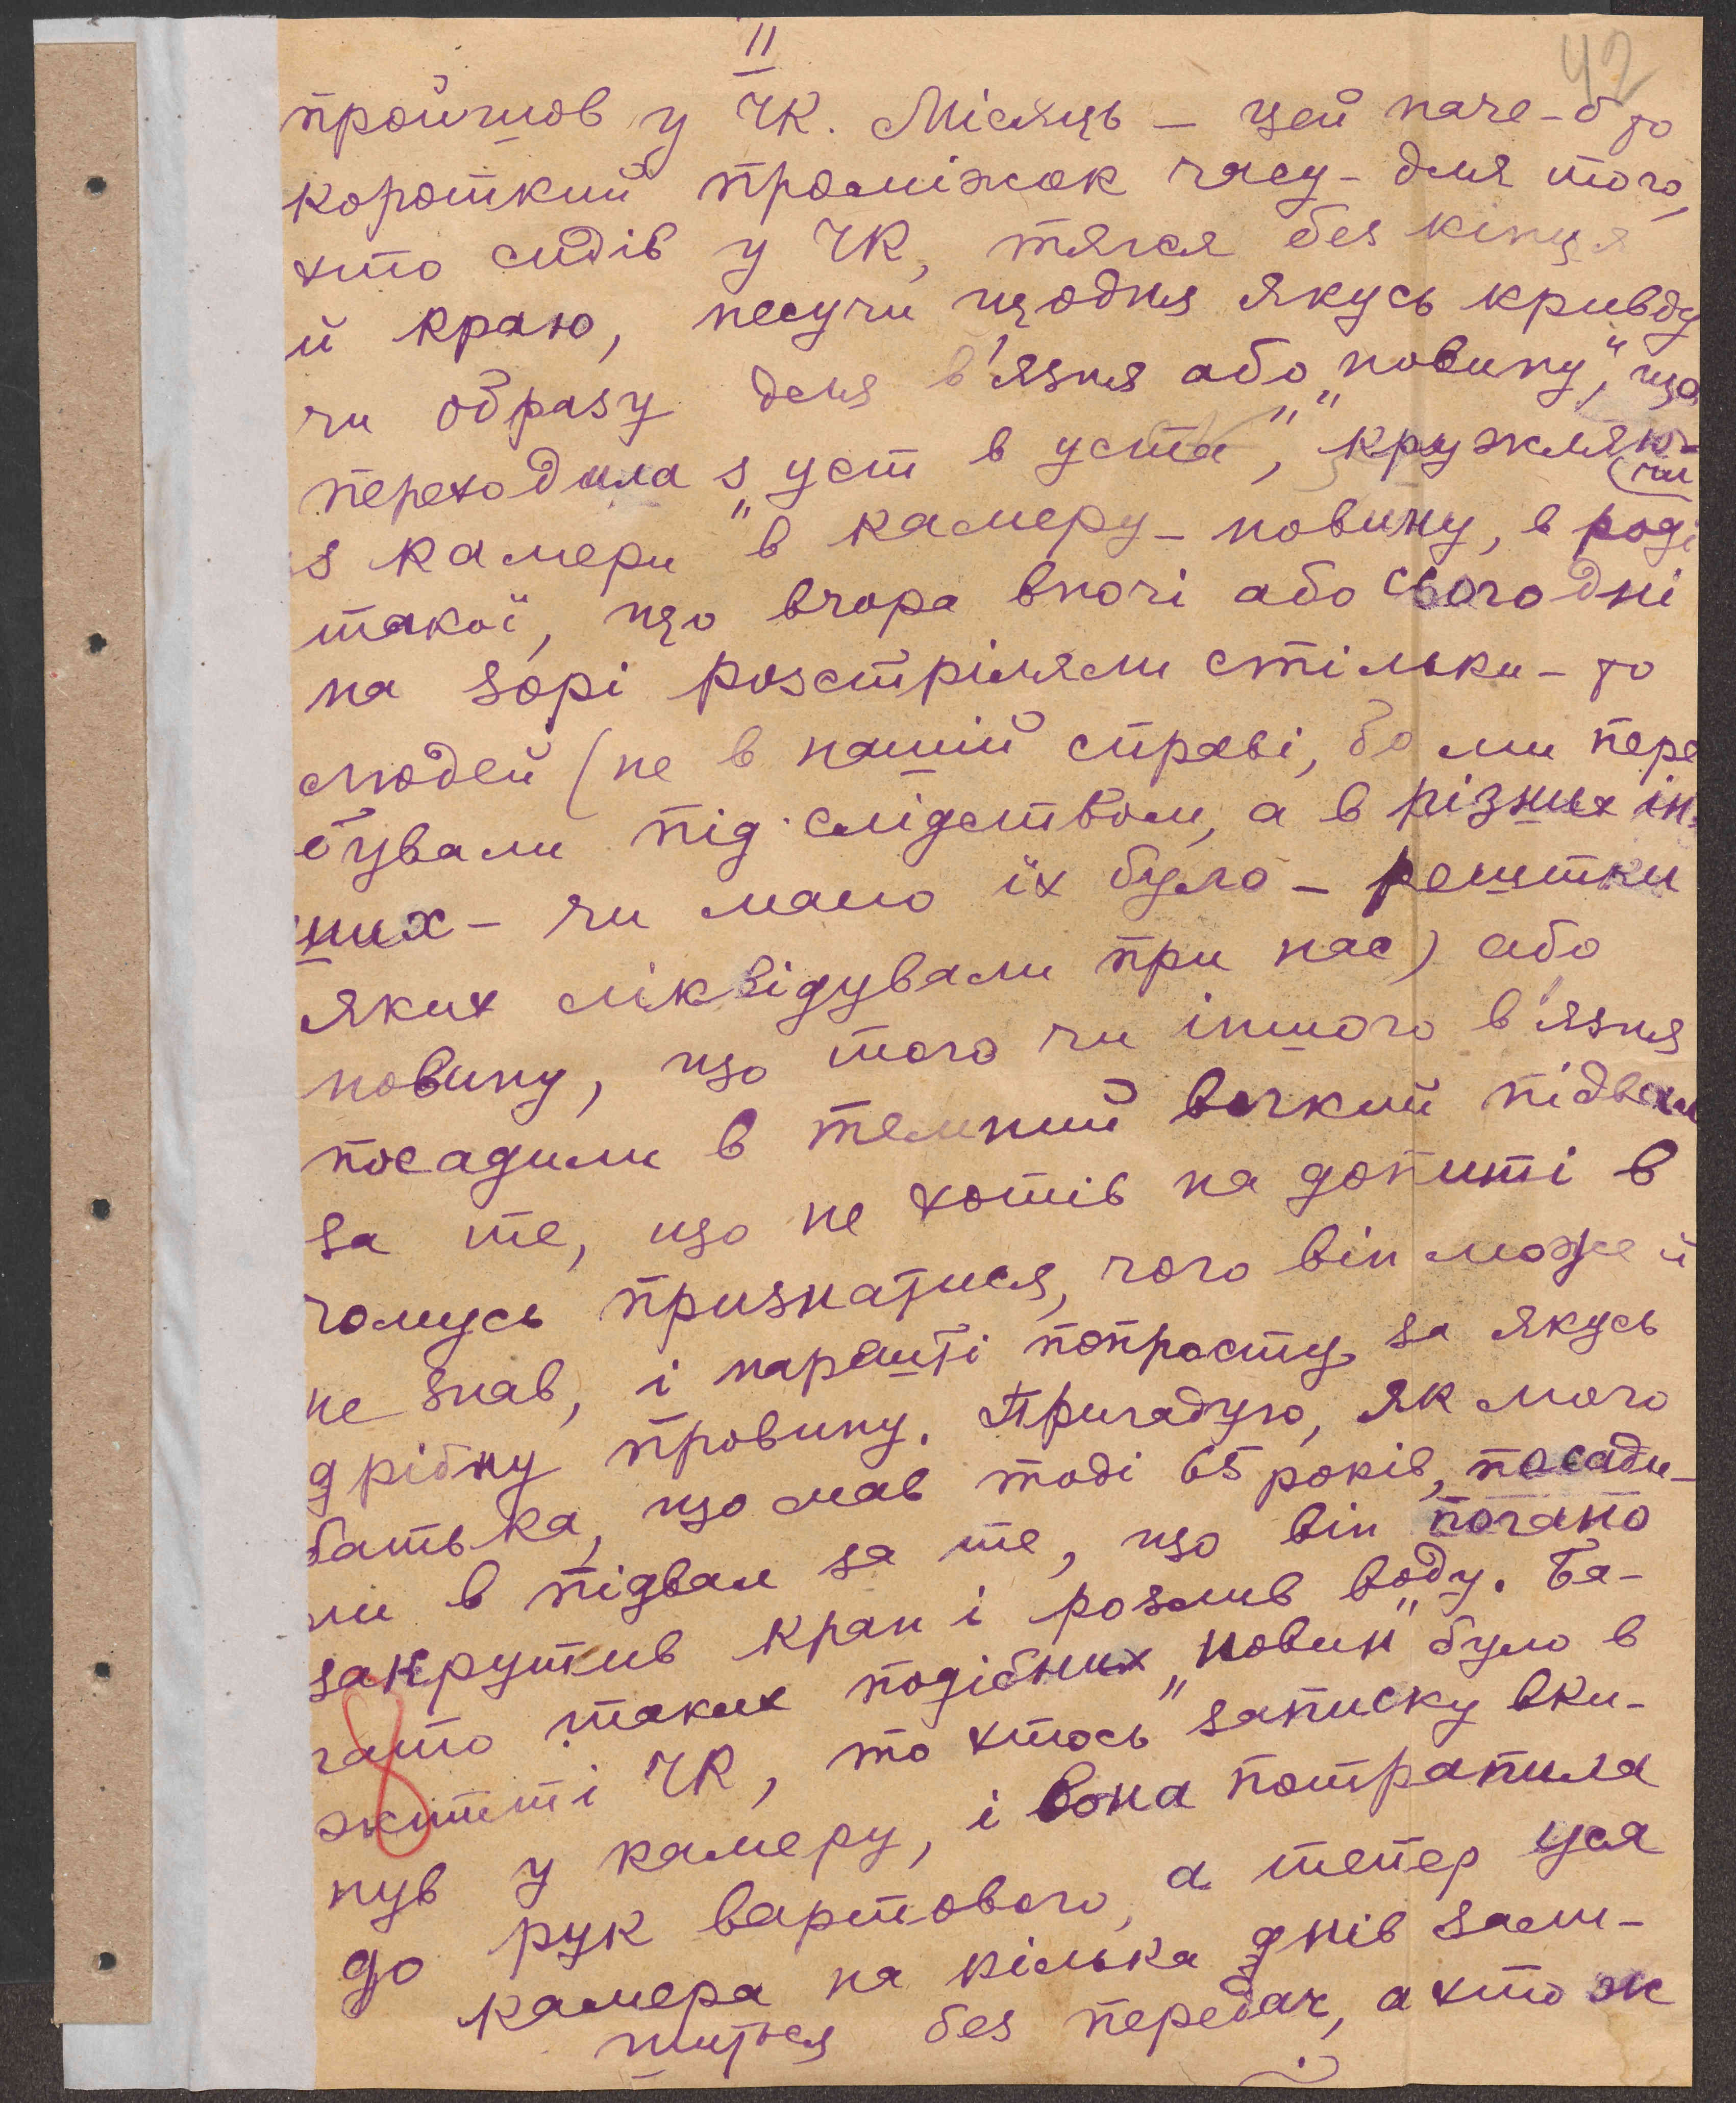 II
42
пройшов у ЧК. Місяць – цей наче-б то
короткий проміжок часу – для того,
хто сидів у ЧК, тягся без кінця
й краю, несучи щодня якусь кривду
чи образу для в'язня або „новину", що
переходила „з уст в уста", кружляю-
чи
з камери в камеру – новину, в роді
такої, що вчора вночі або сьогодні
на зорі розстріляли стільки-то
людей (не в нашій справі, бо ми пере
бували під слідством, а в різних ін-
ших – чи мало їх було – рештки
яких ліквідували при нас) або
новину, що того чи іншого в'язня
посадили в темний вогкий підвал
за те, що не хотів на допиті в
чомусь признатися, чого він може й
не знав, і нарешті попросту за якусь
дрібну провину. Пригадую, як мого
батька, що мав тоді 65 років, посади-
ли в підвал за те, що він погано
закрутив кран і розлив воду. Ба-
гато таких подібних „новин" було в
житті ЧК, то хтось „записку вки-
нув у камеру, і вона потрапила
до рук вартового, а тепер уся
камера на кілька днів зали-
шиться без передач, а хто ж
8